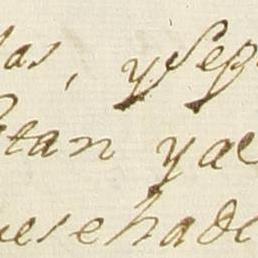 las, y seg
tan yae
ese hade